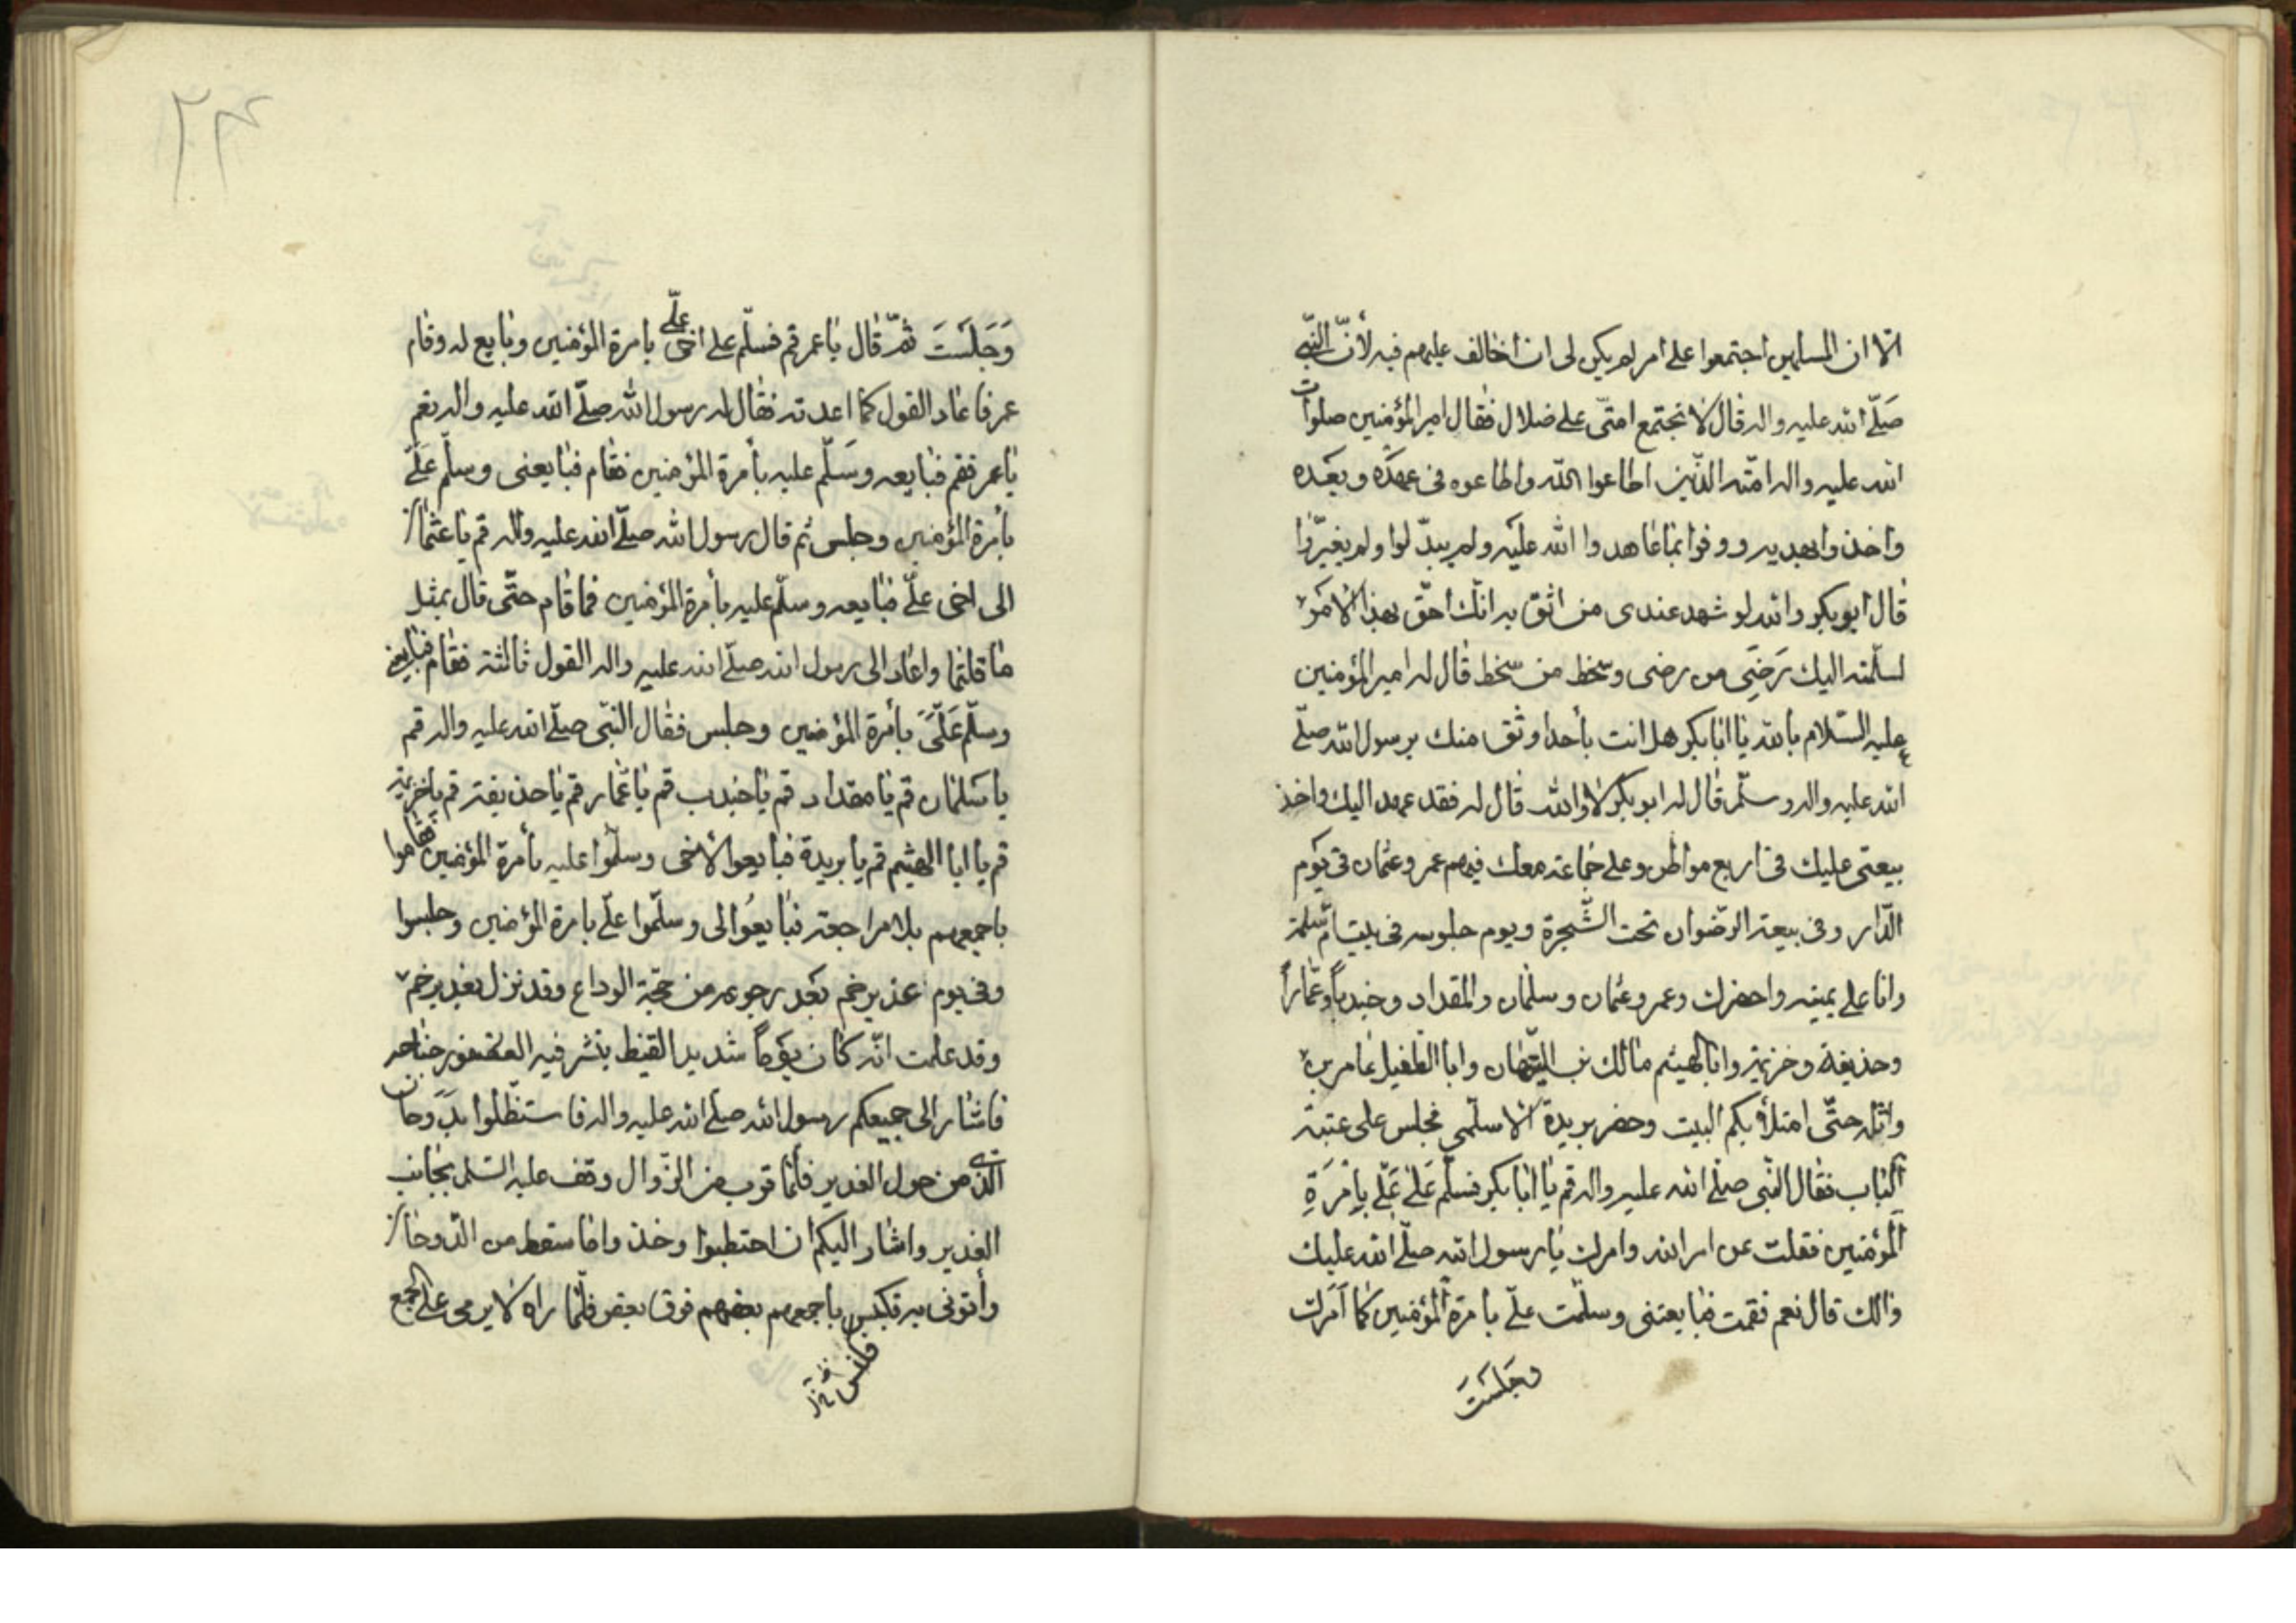 الا ان المسلمين اجتمعوا على امر لم يكن لى ان اخالف عليهم فيه لأنّ النّبى
صَلّى الله عليه واله قال لا تجتمع امتى على ضلال فقال امير المؤمنين صلوات
الله عليه واله امّته الذّين اطاعوا الله واطاعوه فى عهدَه وبعَده
واخذوا بهديه ووفوا بما عاهدوا الله عليَه ولم يبدّلوا ولم يغيّروا
قال ابو بكر والله لو شهد عندى من اثق به انّك احقّ بهذا الامَر
لسلّمته اليك رَضِىَ من رضى وسخط من سخط قال له امير المؤمنين
عليه السّلام بالله يا ابا بكر هل انت بأحد اوثق منك برسول الله صلّى
الله عليه واله وسلّم قال له ابو بكر لا والله قال له فقد عهد اليك واخذ
بيعتى عليك فى اربع مواطن وعلى جماعة معك فيهم عمر وعثمان فى يَوم
الدّار وفى بيعة الرّضوان تحت الشّجرة ويوم جلوسه فى بيت امّ سلمة
وانا على يمينه واحضرك وعمر وعثمان وسلمان والمقداد وجندباً وعمّاراً
وحذيفة وخزيمة وابا الهيثم مالك بن التيّهان وابا الطفيل عامر بن
واثله حتّى امتلأ بكم البيت وحضر بريدة الاسلمى فجلس على عتبة
الباب فقال النّبى صلّى الله عليه واله قم يا ابا بكر فسلّم عَلىَ عَلّى بِامْرَةِ
المؤمنين فقلت عن امر الله وامرك يا رسول الله صلّى الله عليك
والك قال نعم فقمت فبايعتنى وسلّمت علّى بامرة المؤمنين كما اَمَرك
وجَلسَتَ
٢٣
وَجَلسَتَ ثمّ قال يا عمر قم فسلّم على اخى علّى بامرة المؤمنين وبايع له وقام
عمر فاعاد القول كما اعدته فقال له رسول الله صلّى الله عليه واله نعم
يا عمر فقم فبايعه وسَلّم عليه بأمرة المؤمنين فقام فبايعنى وسلّم علَىّ
بأمرة المؤمنين وجلس ثم قال رسول الله صلّى الله عليه واله قم يا عثمان
الى اخى علّى فبايعه وسلّم عليه بأمرة المؤمنين فما قام حتّى قال بمثل
ما قلتما واعاد الى رسول الله صلّى الله عليه واله القول ثالثة فقام فبايعنى
وسلّم عَلَّىَ بأمرة المؤمنين وجلس فقال النّبى صلّى الله عليه واله قم
يا سَلمان قم يا مقداد قم يا جندب قم يا عمّار قم يا حذيفة قم يا خزيمة
قم يا ابا الهيثم قم يا بريدة فبايعوا لأخى وسلّموا عليه بأمرة المؤمنين فقاموا
باجمعهم بلا مراجعة فبايعُوا لى وسلّموا علّى بامرة المؤمنين وجلسوا
وفى يوم غدير خم بَعد رجوعه من حجّة الوداع وقد نزل بغدير خم
وقد علمت انّه كان يَوماً شديد القيظ ينشر فيه العصفور جناحه
فاشار الى جميعكم رسول الله صلّى الله عليه واله فاستظّلوا بدَوحان
الذى من حول الغدير فلمّا قرب من الزّوال وقف عليه السّلم بجانب
الغدير واشار اليكم ان احتطبوا وخذوا ما سقط من الدّوحان
وأتونى به فكبس باجمعهم بعضهم فوق بعض فلّما راه لا يرمى على الجمع